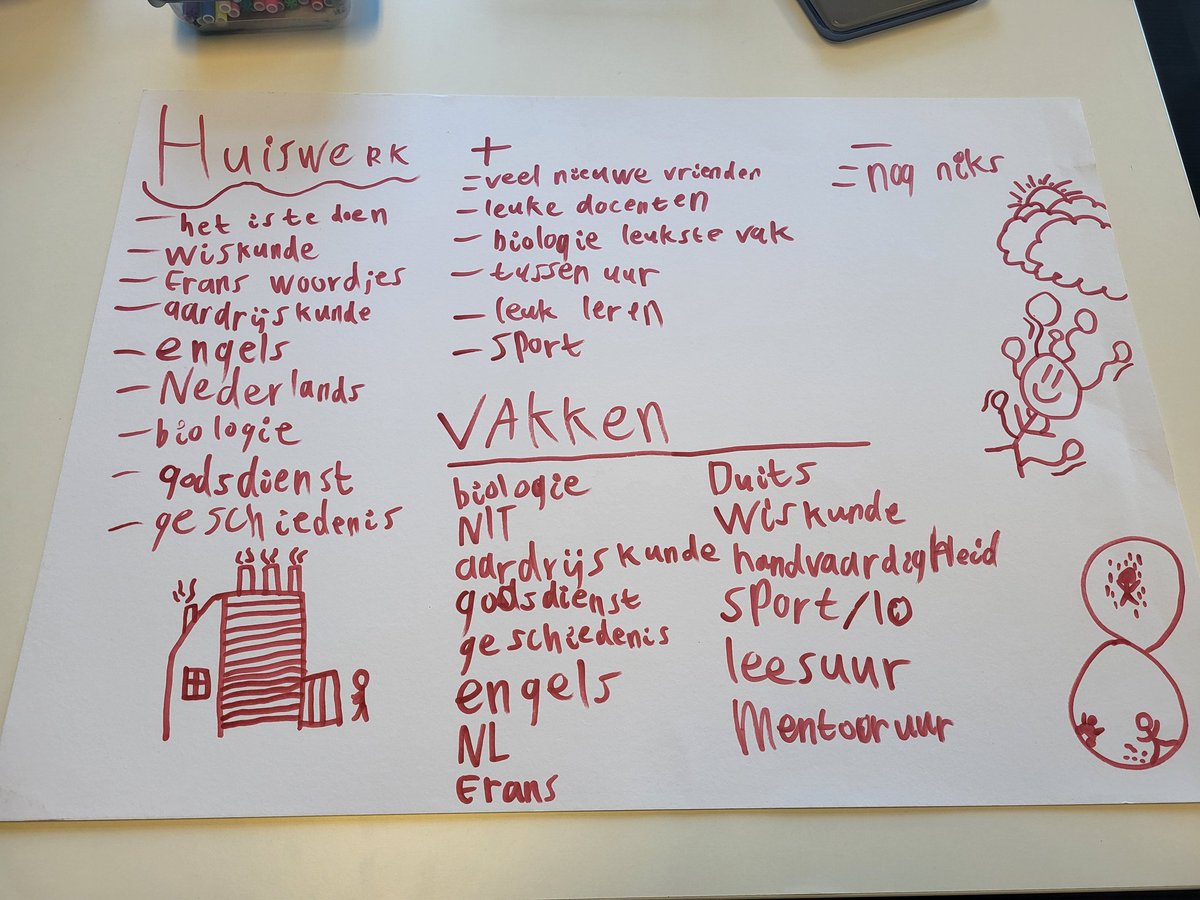 HuisweRK
- het is te doen
- wiskunde
- Frans woordjes
- aardrijskunde
- engels
- Nederlands
- biologie
- godsdienst
- geschiedenis
+
- veel nieuwe vrienden
- leuke docenten
- biologie leukste vak
- tussen uur
- leuk leren
- sport
-
- nog niks
VAKKen
biologie
NIT
aardrijskunde
godsdienst
geschiedenis
engels
NL
Frans
Duits
Wiskunde
handvaardigheid
sport/lo
leesuur
Mentoruur